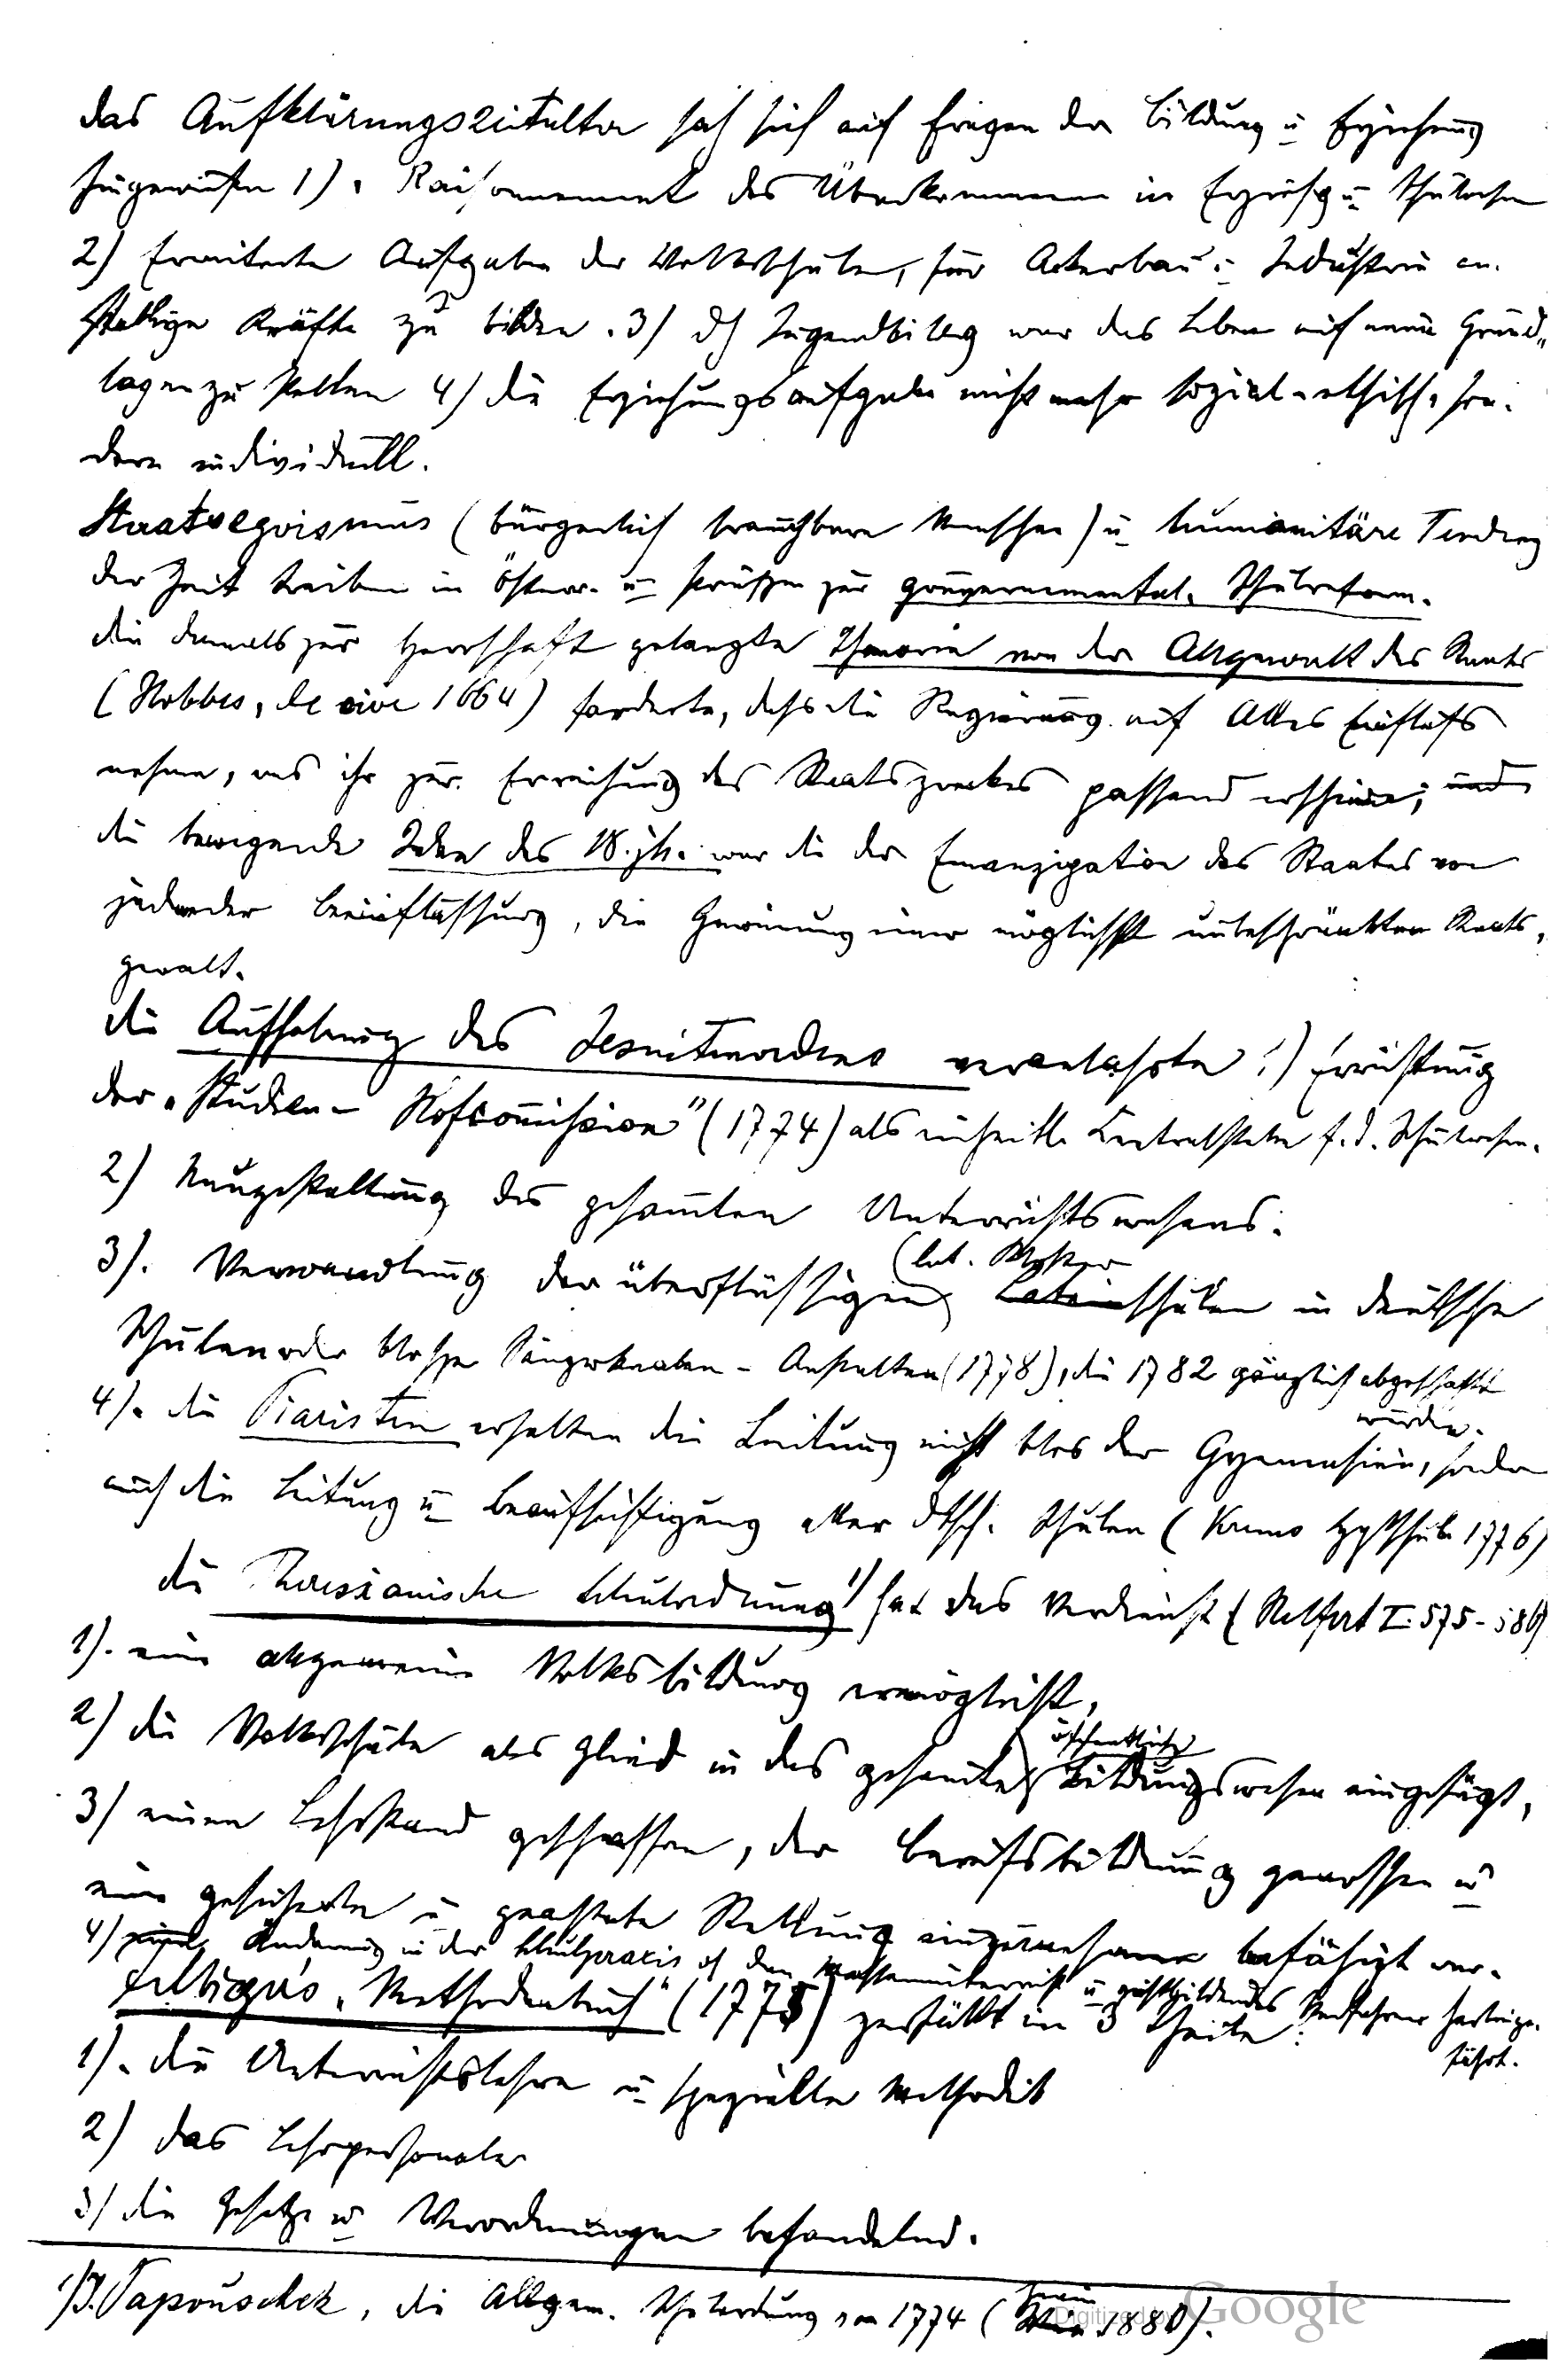 das Aufklärungszeitalter sah sich auf Fragen der Bildung u Erziehung
hingewiesen 1). Raisonnement des Überkommenen in Erziehg u Schulwesen
2) Erweiterte Aufgaben der Volksschulen, für Ackerbau u Industrie an-
stellige Kräfte zu bilden. 3) dch Jugendbildg war das Leben auf neue Grund-
lagen zu stellen 4) die Erziehungsaufgabe nicht mehr sozial-ethisch, son-
dern individuell.
Staatsegoismus (bürgerlich brauchbare Menschen) u humanitäre Tendenz
der Zeit treiben in Österr. u Preußen zur gouvernemental. Schulreform.
die damals zur Herrschaft gelangte Theorie von der Allgewalt des Staates
(Hobbes, de cive 1664) forderte, dass die Regierung auf Alles Einfluss
nehme, was ihr zur Erreichung des Staatszweckes passend erscheine; und
die bewegende Idee des 18. Jh. war die der Emanzipation des Staates von
jedweder Beeinflussung, die Gewinnung einer möglichst unbeschränkten Staats-
gewalt.
die Aufhebung des Jesuitenordens veranlasste 1) Errichtung
der „Studien-Hofcommission" (1774) als einheitl. Centralstelle f. d. Schulwesen.
2) Neugestaltung des gesamten Unterrichtswesens.
3). Verwandlung der überflüssigen (lat. Kloster
Lateinschulen in deutsche
Schulen oder blosse Sängerknaben-Anstalten (1778), die 1782 gänzlich abgeschafft
wurden.
4). die Piaristen erhalten die Leitung nicht blos der Gymnasien, sondern
auch die Leitung u Beaufsichtigung aller dtsch. Schulen (Krems Hptschule 1776)
die Theresianische Schulordnung 1) hat das Verdienst (Helfert I. 575-586)
1). eine allgemeine Volksbildung ermöglicht,
2) die Volksschule als Glied in das gesamte öffentliche Bildungswesen eingefügt,
3) einen Lehrstand geschaffen, der Berufsbildung genossen u
eine gesicherte u geachtete Stellung einzunehmen befähigt war.
4) eine Änderung in der Schulpraxis dch den Massenunterricht u geistbildendes Verfahren herbeige-
führt.
Felbiger's „Methodenbuch" (1775) zerfällt in 3 Theile:
1). die Unterrichtslehre u spezielle Methodik
2) das Lehrpersonale
3) die Gesetze u Verordnungen behandelnd.
1) J. Tapouschek, die Allgem. Schulordnung von 1774 (Wien 1880).
Digitized by Google